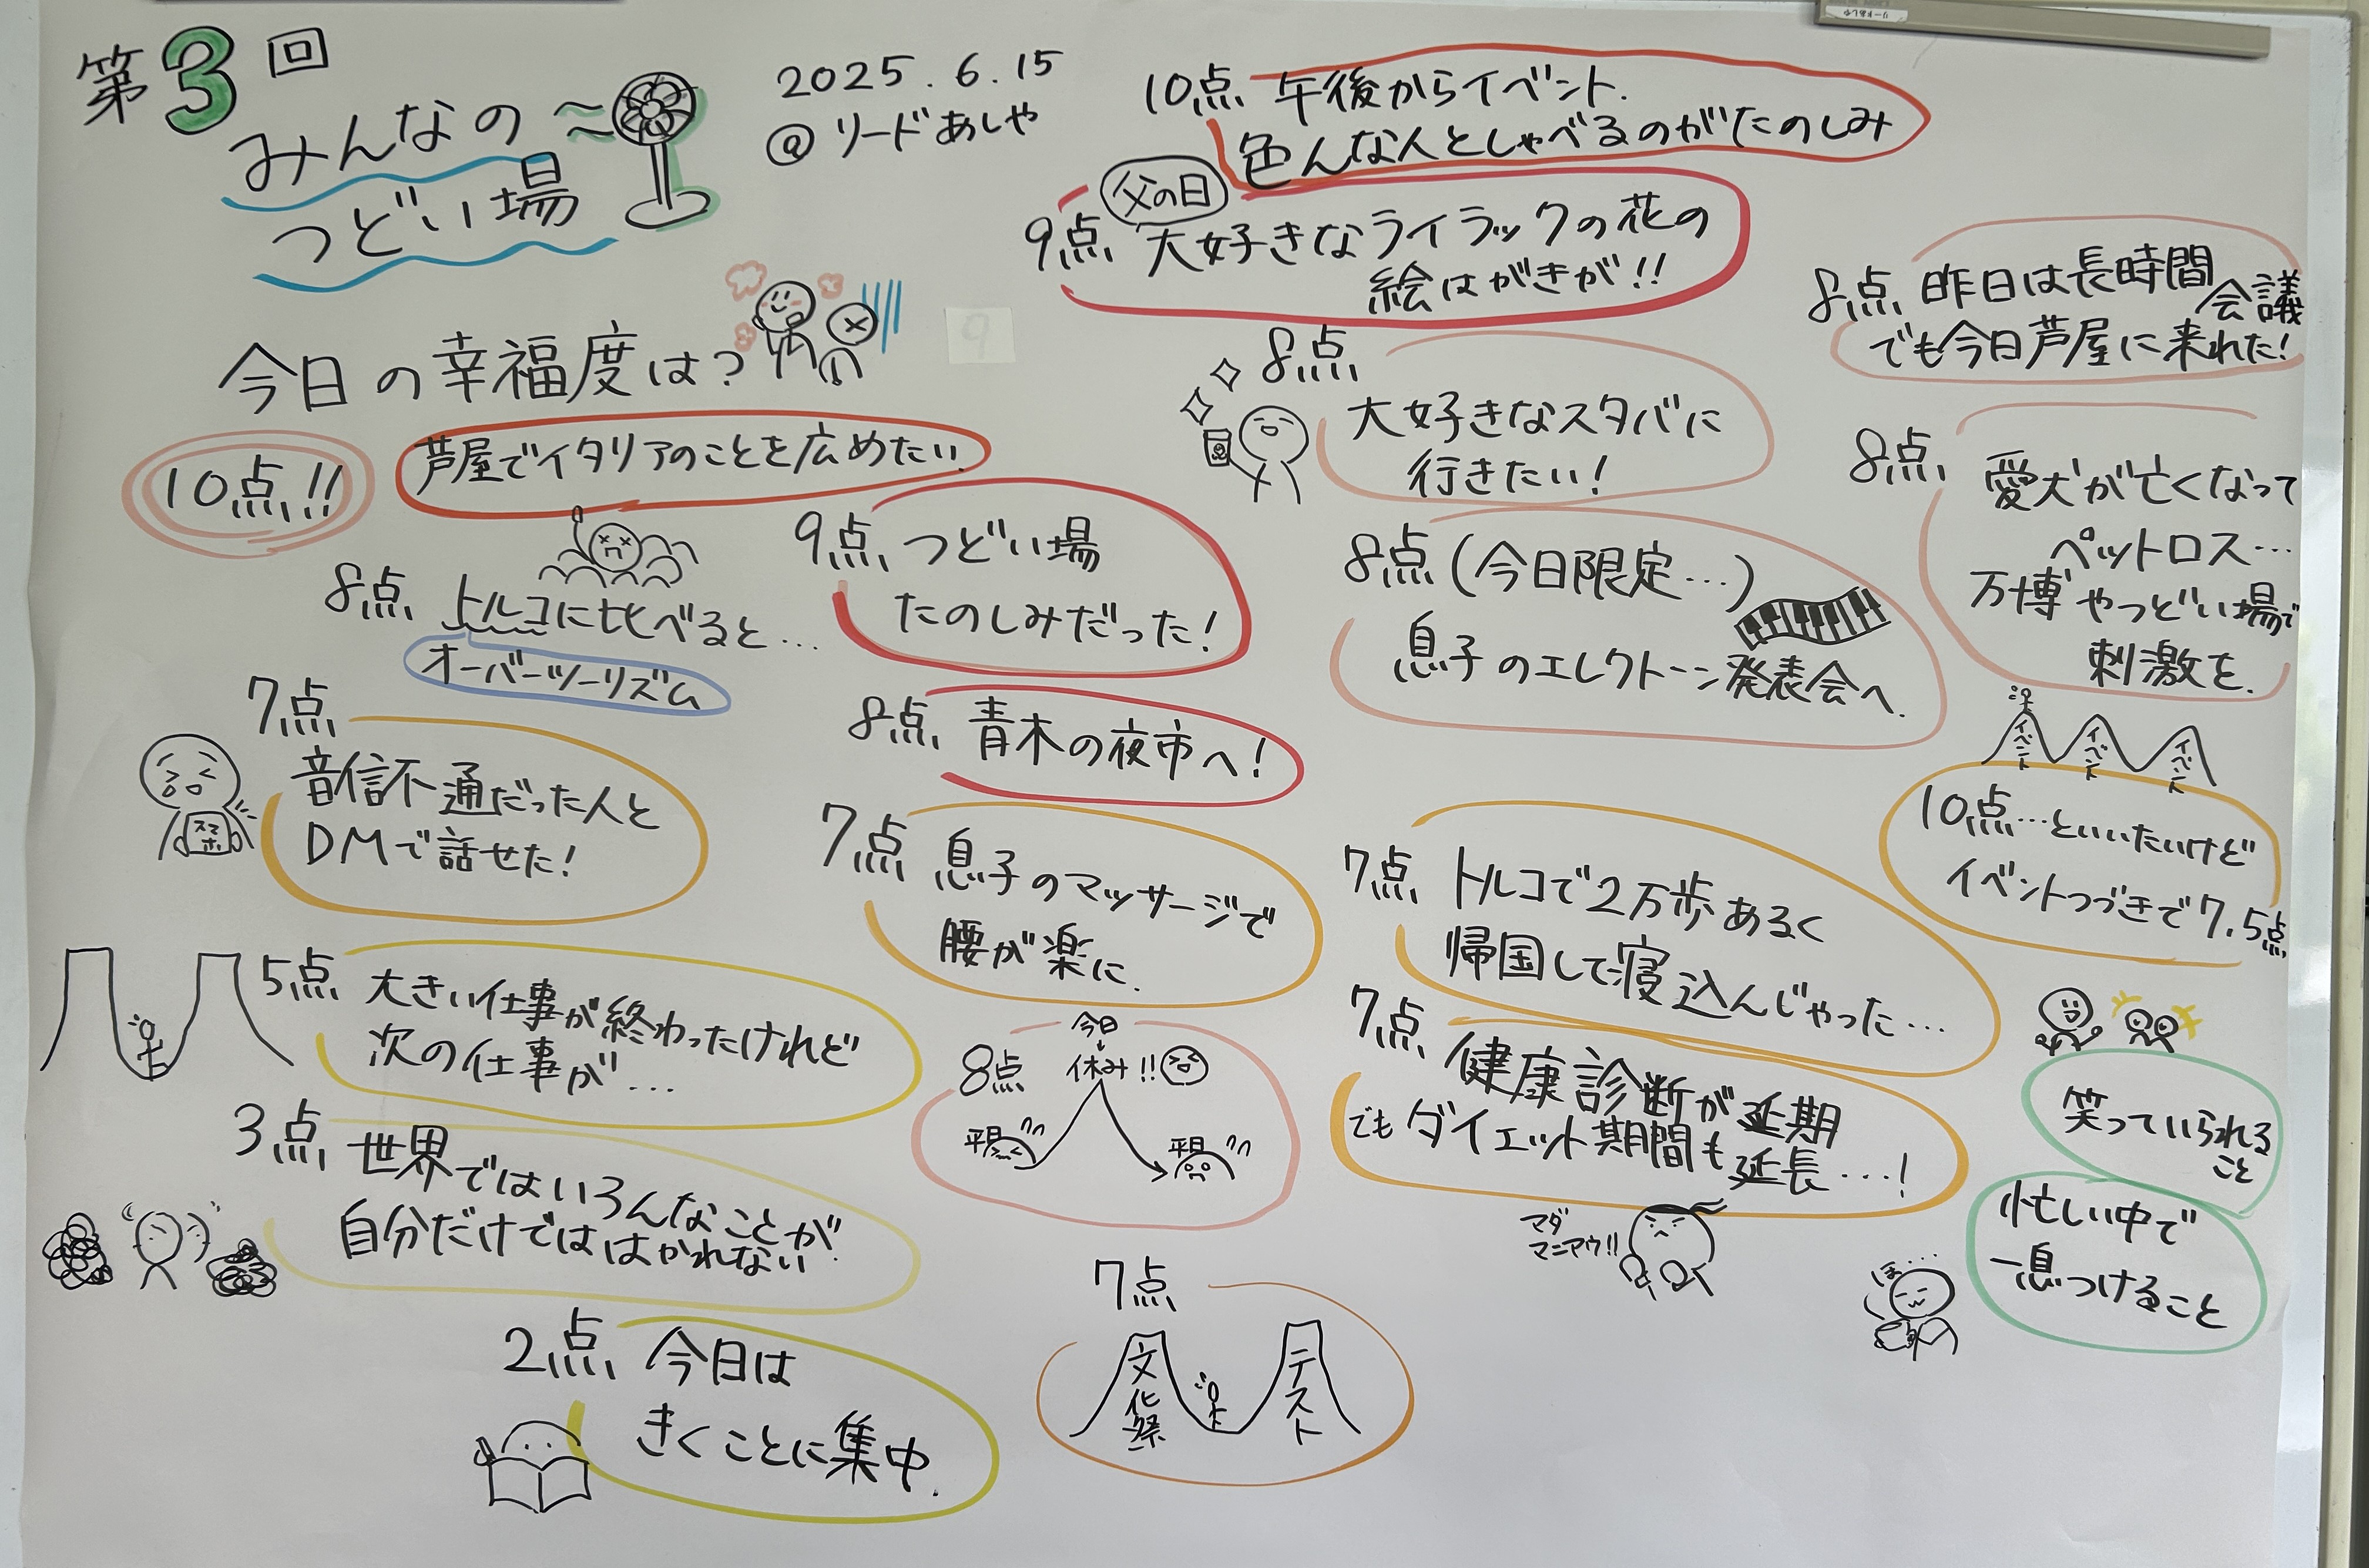 第3回
みんなの
つどい場
2025.6.15
@リードあしや
今日の幸福度は?
10点!!
芦屋でイタリアのことを広めたい
8点 トルコに比べると…
オーバーツーリズム
7点
音信不通だった人と
DMで話せた!
スマホ
5点 大きい仕事が終わったけれど
次の仕事が…
3点 世界ではいろんなことが
自分だけでははかれない
2点 今日は
きくことに集中.
10点 午後からイベント.
色んな人としゃべるのがたのしみ
父の日
9点 大好きなライラックの花の
絵はがきが!!
9
9点 つどい場
たのしみだった!
8点 青木の夜市へ!
7点 息子のマッサージで
腰が楽に.
8点
今日
休み!!
平日
平日
7点
文化祭
テスト
8点
大好きなスタバに
行きたい!
8点(今日限定…)
息子のエレクトーン発表会へ.
7点 トルコで2万歩あるく
帰国して寝込んじゃった…
7点 健康診断が延期
でもダイエット期間も延長…!
マダ
マニアウ!!
8点 昨日は長時間会議
でも今日芦屋に来れた!
8点
愛犬が亡くなって
ペットロス…
万博やつどい場で
刺激を.
イベント
イベント
イベント
10点…といいたいけど
イベントつづきで7.5点
笑っていられる
こと
忙しい中で
一息つけること
ほ…